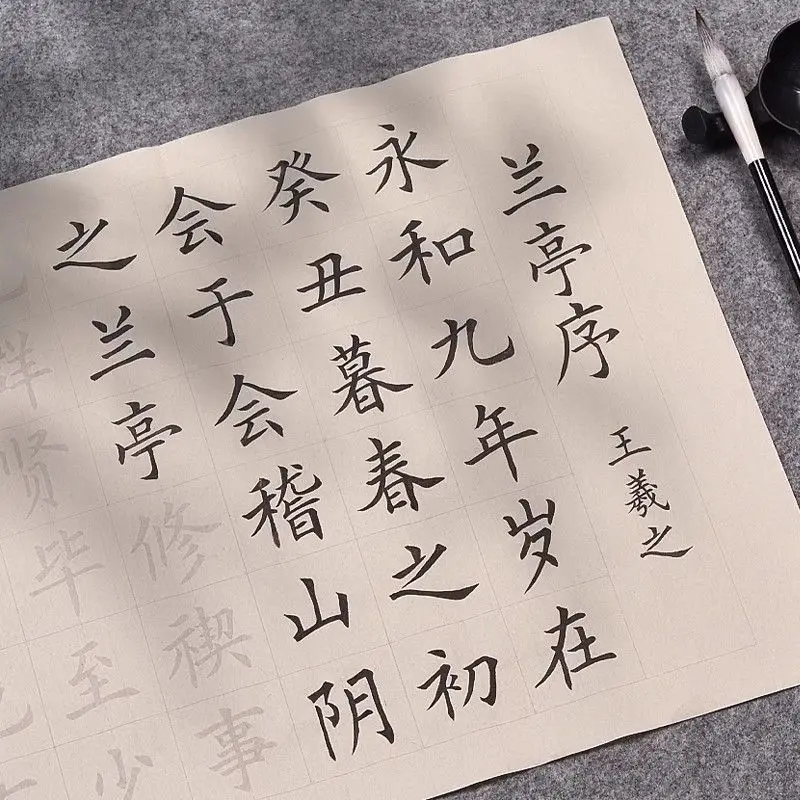 兰亭序 王羲之
永和九年岁在
癸丑暮春之初
会于会稽山阴
之兰亭修禊事
群贤毕至少